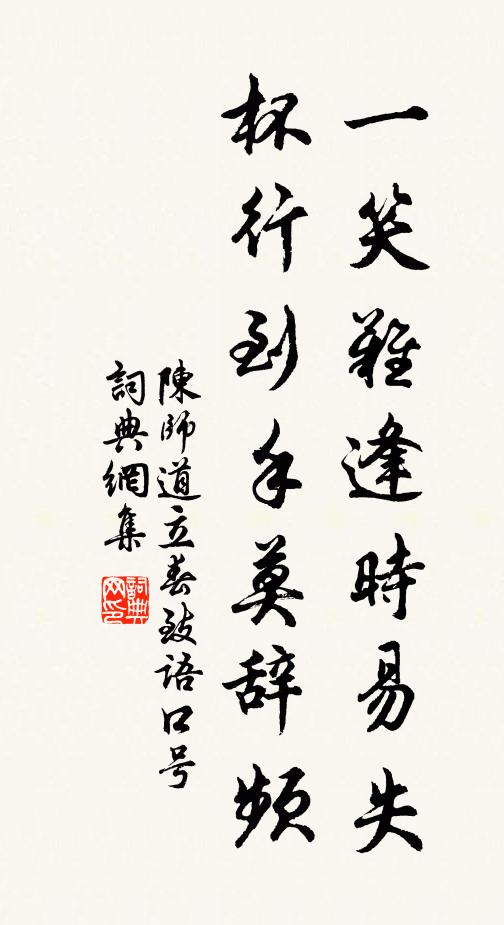 一笑難逢時易失
杯行到手莫辞頻
陳師道立春致語口号
詞典網集
詞典網印